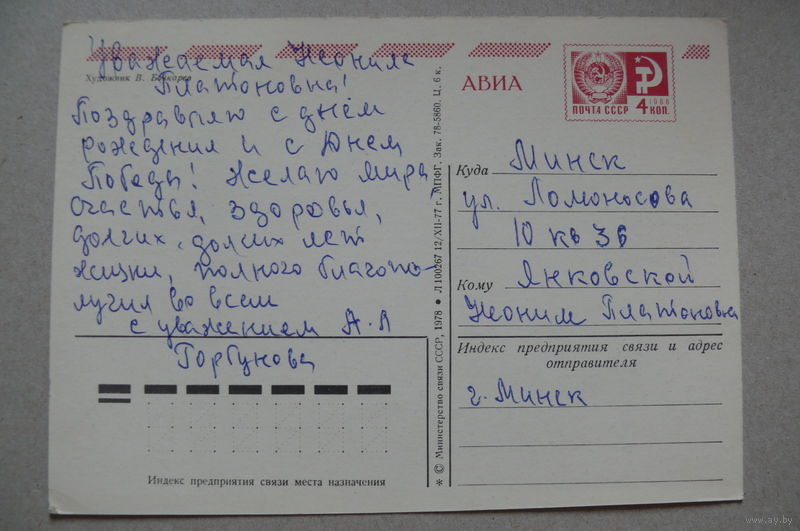 Уважаемая Неонила
Художник В. Бочкарев
Платоновна!
Поздравляю с днём
рождения и с Днем
Победы! Желаю мира,
счастья, здоровья,
долгих, долгих лет
жизни, полного благопо-
лучия во всем
с уважением А. Л
Горбунова
Индекс предприятия связи места назначения
* © Министерство связи СССР, 1978 • Л 100267 12/XII-77 г. МПФГ. Зак. 78-5860. Ц. 6 к.
АВИА
1966
ПОЧТА СССР 4 КОП.
Куда Минск
ул. Ломоносова
10 кв 36
Кому Янковской
Неонил Платоновна
Индекс предприятия связи и адрес
отправителя
г. Минск
www.ay.by